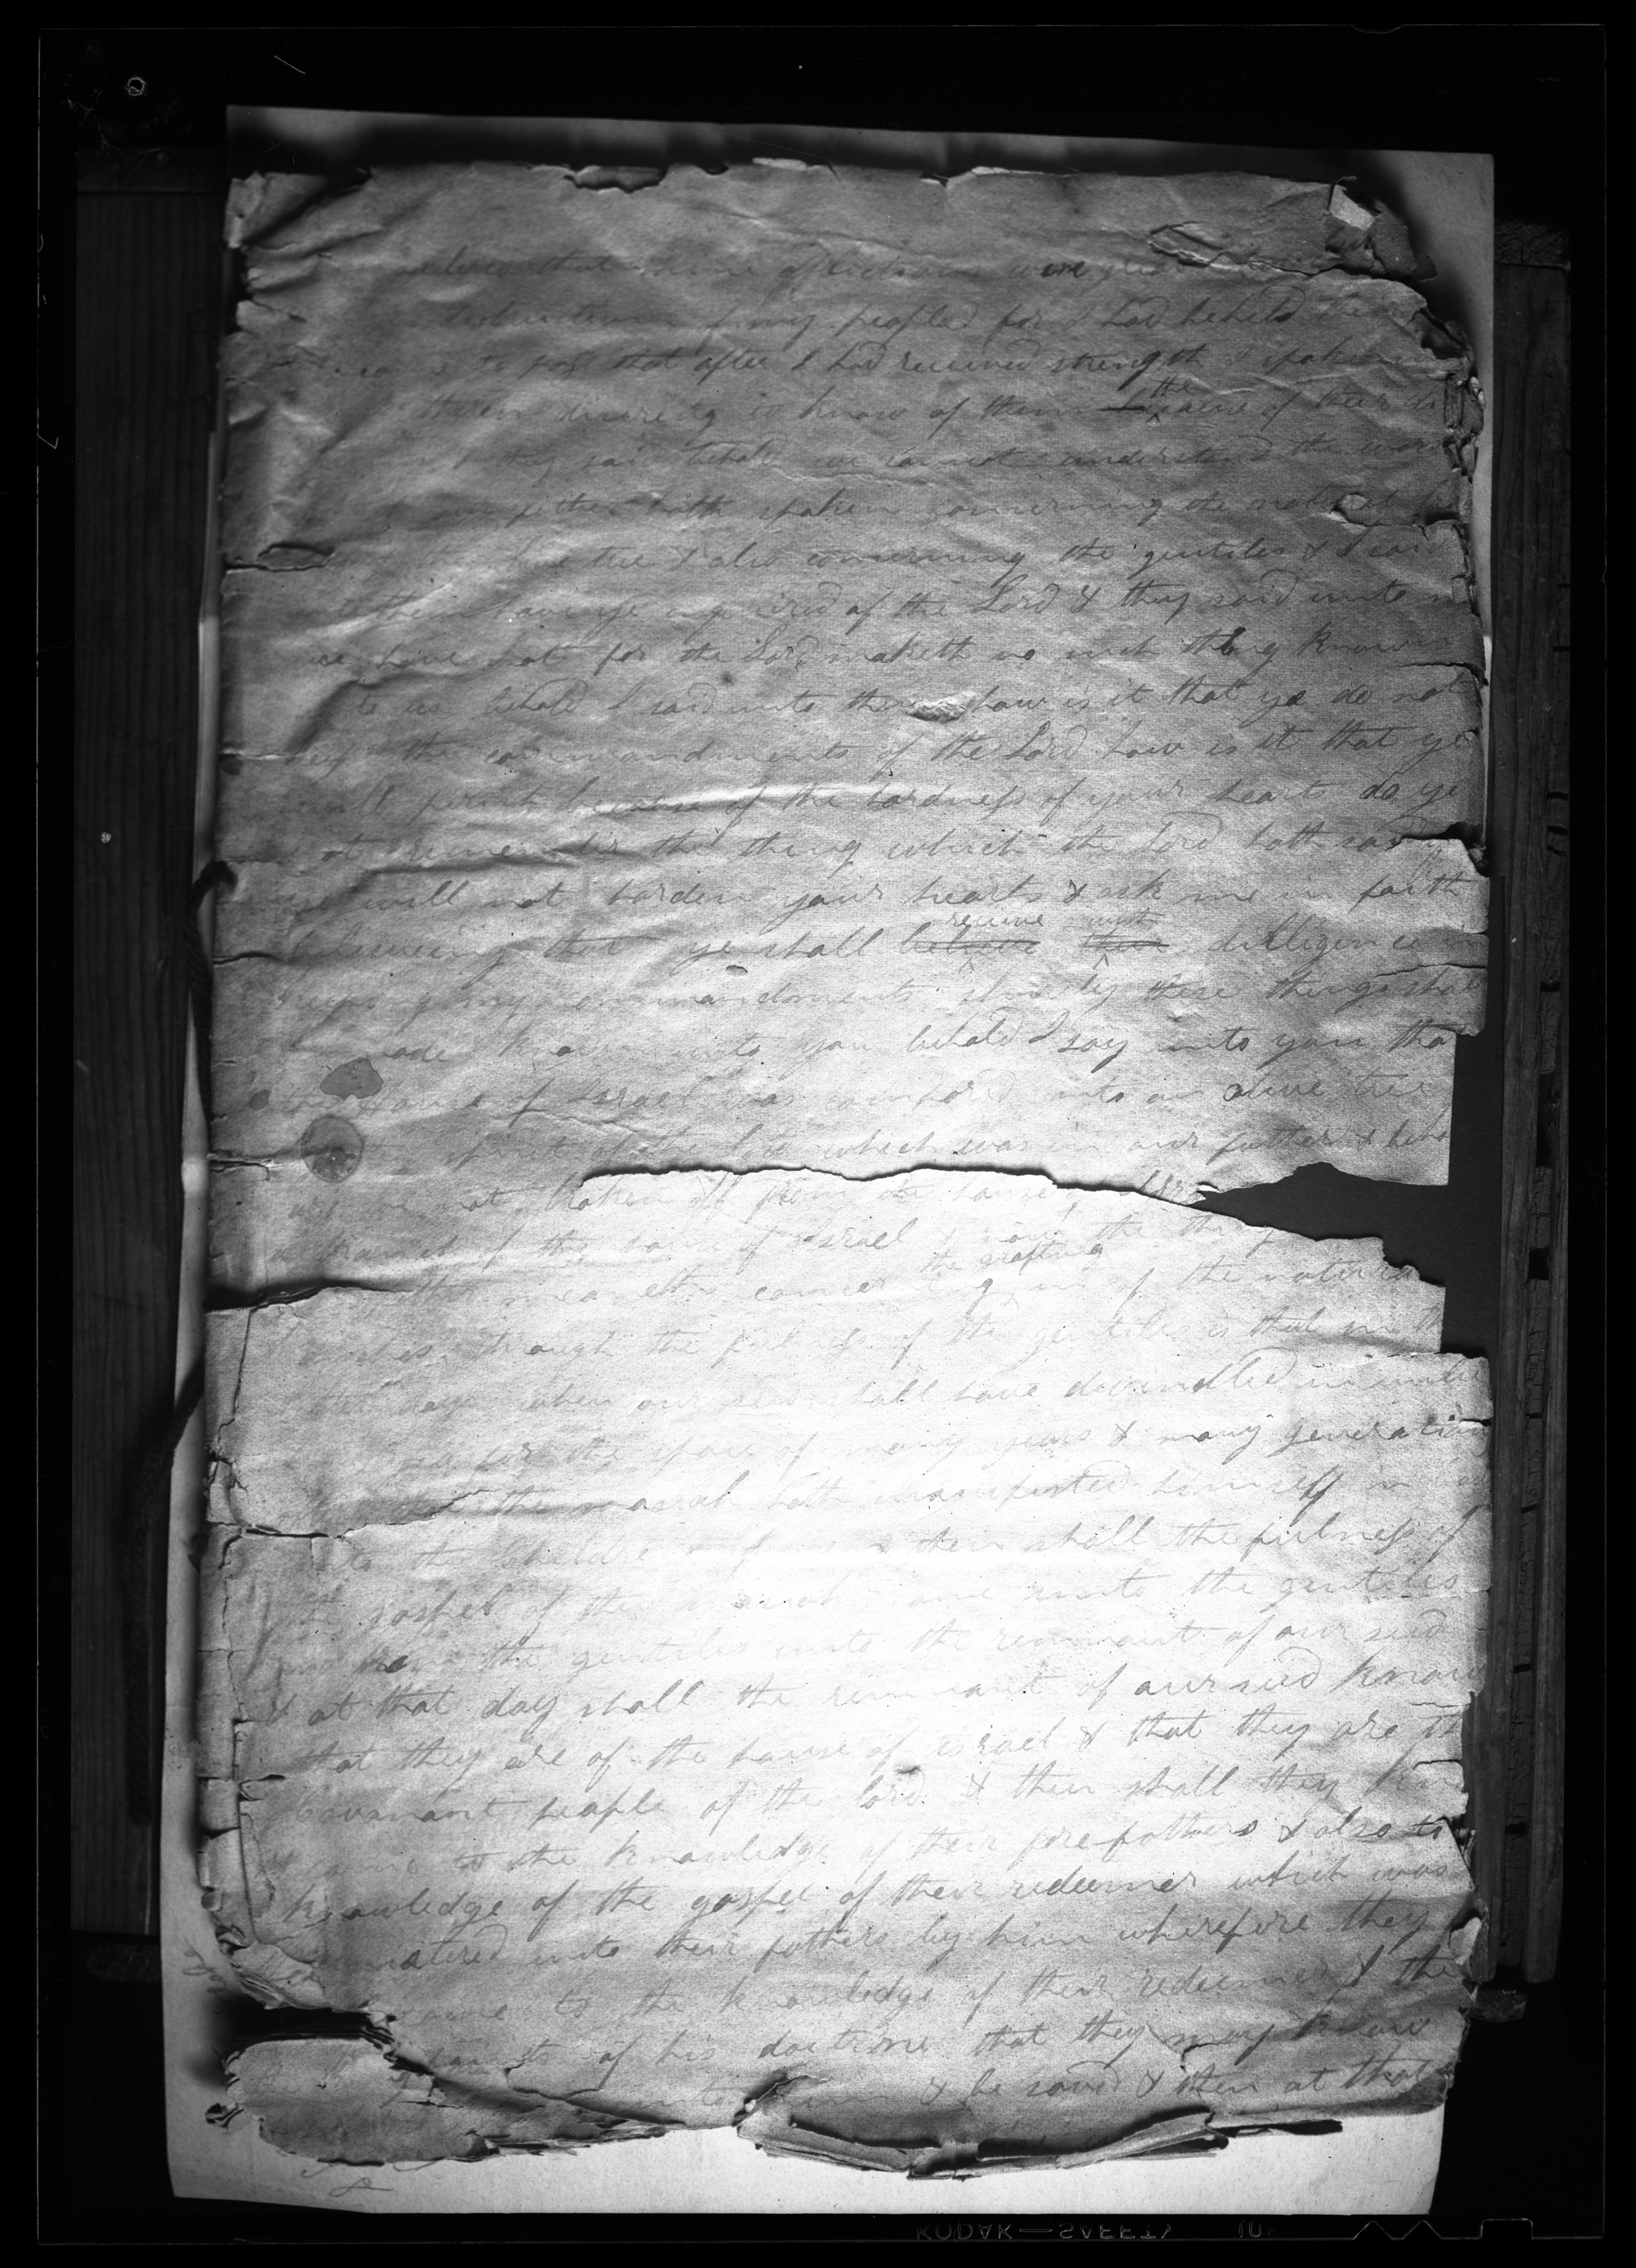 that mine afflictions were great
of my people for I had beheld
to pass that after I had received strength I spake
desiring to know of them the of
they said behold we cannot understand the
father hath spoken concerning the
tree & also concerning the gentiles & I said
have ye enquired of the Lord & they said unto
we have not for the Lord maketh no such thing known
to us behold I said unto them how is it that ye do not
the commandments of the Lord how is it that ye
will perish because of the hardness of your hearts do ye
remember the thing which the Lord hath said
ye will not harden your hearts & ask me in faith
receive with
believing that ye shall believe dilligence in
my commandments shurely these things shall
made known unto you behold I say unto you that
the House of Israel was compared unto an olive tree
spirit of the Lord which was in our father &
are we not broken off from the house
a branch of the house of Israel & now the thing
the grafting
father meaneth concerning in of the
through the fulness of the gentiles is that in
days when our seed shall have dwindled in
for the space of many years & many generations
the masiah hath manifested himself in
to the children of then shall the fulness of
the gospel of the come unto the gentiles
the gentiles unto the remnant of our seed
& at that day shall the remnant of our seed know
that they are of the house of israel & that they are
covenant people of the lord & then shall they
come to the knowledge of their forefathers & also to
knowledge of the gospel of their redeemer which was
unto their fathers by him wherefore they
come to the knowledge of their redeemer & the
points of his doctrine that they may know
& be saved & then at that
KODAK—SAFETY